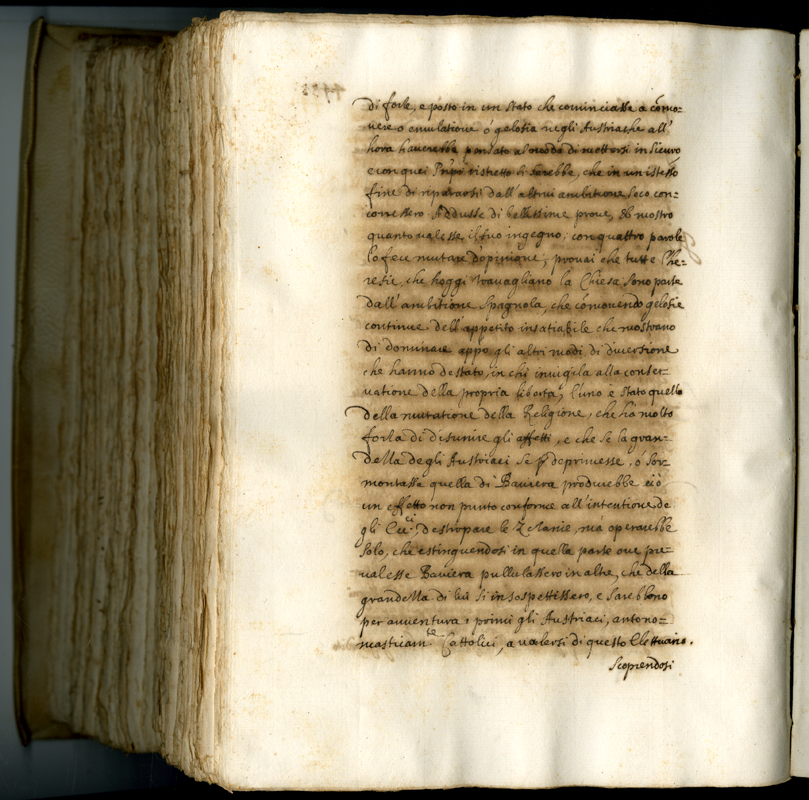 di forze, e posto in un stato che cominciasse a com̃o=
vere o emulatione o gelosia negli Austriache all'
hora hauerebbe pensato al modo di mettersi in sicuro
e con quei Prñpi ristretto si sarebbe, che in un istesso
fine di ripararsi dall'altrui ambitione seco con=
corressero Addusse di bellissime prove, et mostrò
quanto valesse il suo ingegno; con quattro parole
lo fece mutare d'opinione; provai che tutte l'he=
resie, che hoggi travagliano la Chiesa sono parte
dall'ambitione Spagnola, che com̃ovendo gelosie
continue dell'appetito insatiabile che mostrano
di dominare app̃o gli altri modi di diversione
che hanno destato, in chi invigila alla conser=
uatione della propria libertà, l'uno è stato quello
della mutatione della Religione, che hà molto
forza di disunire gli affetti, e che se la gran=
dezza degli Austriaci se si deprimesse, o sor=
montasse quella di Baviera produrebbe ciò
un effetto non punto conforme all'intentione de
gli Ecc.ci, d'estirpare le Zelanie, ma operarebbe
solo, che estinguendosi in quella parte ove pre=
valesse Baviera pullulassero in altre, che della
grandezza di lui si insospettissero, e sarebbono
per avventura i primi gli Austriaci, antono=
masticam.te Cattolici, a valersi di questo Elettuario.
Scoprendosi